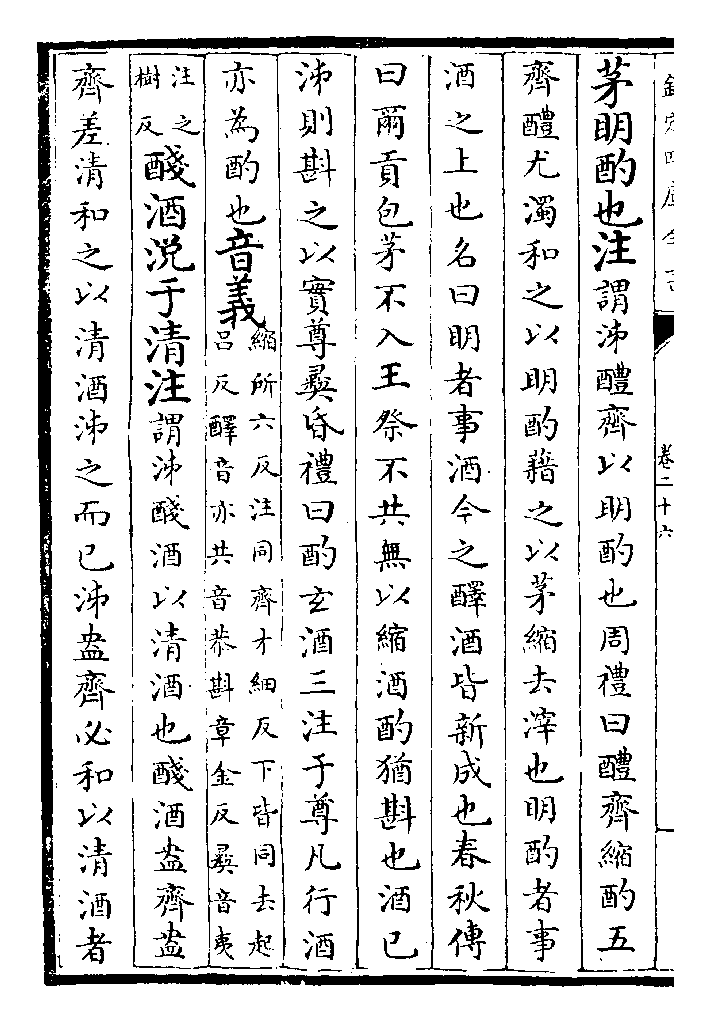 欽定四庫全書
卷二十六
茅明酌也注謂泲醴齊以明酌也周禮曰醴齊縮酌五
齊醴尤濁和之以明酌藉之以茅縮去滓也明酌者事
酒之上也名曰明者事酒今之醳酒皆新成也春秋傳
曰爾貢包茅不入王祭不共無以縮酒酌猶斟也酒已
泲則斟之以實尊彝昏禮曰酌玄酒三注于尊凡行酒
亦為酌也音義縮所六反注同齊才細反下皆同去起
呂反醳音亦共音恭斟章金反彝音夷
注之
樹反
醆酒涚于清注謂泲醆酒以清酒也醆酒盎齊盎
齊差清和之以清酒泲之而已泲盎齊必和以清酒者